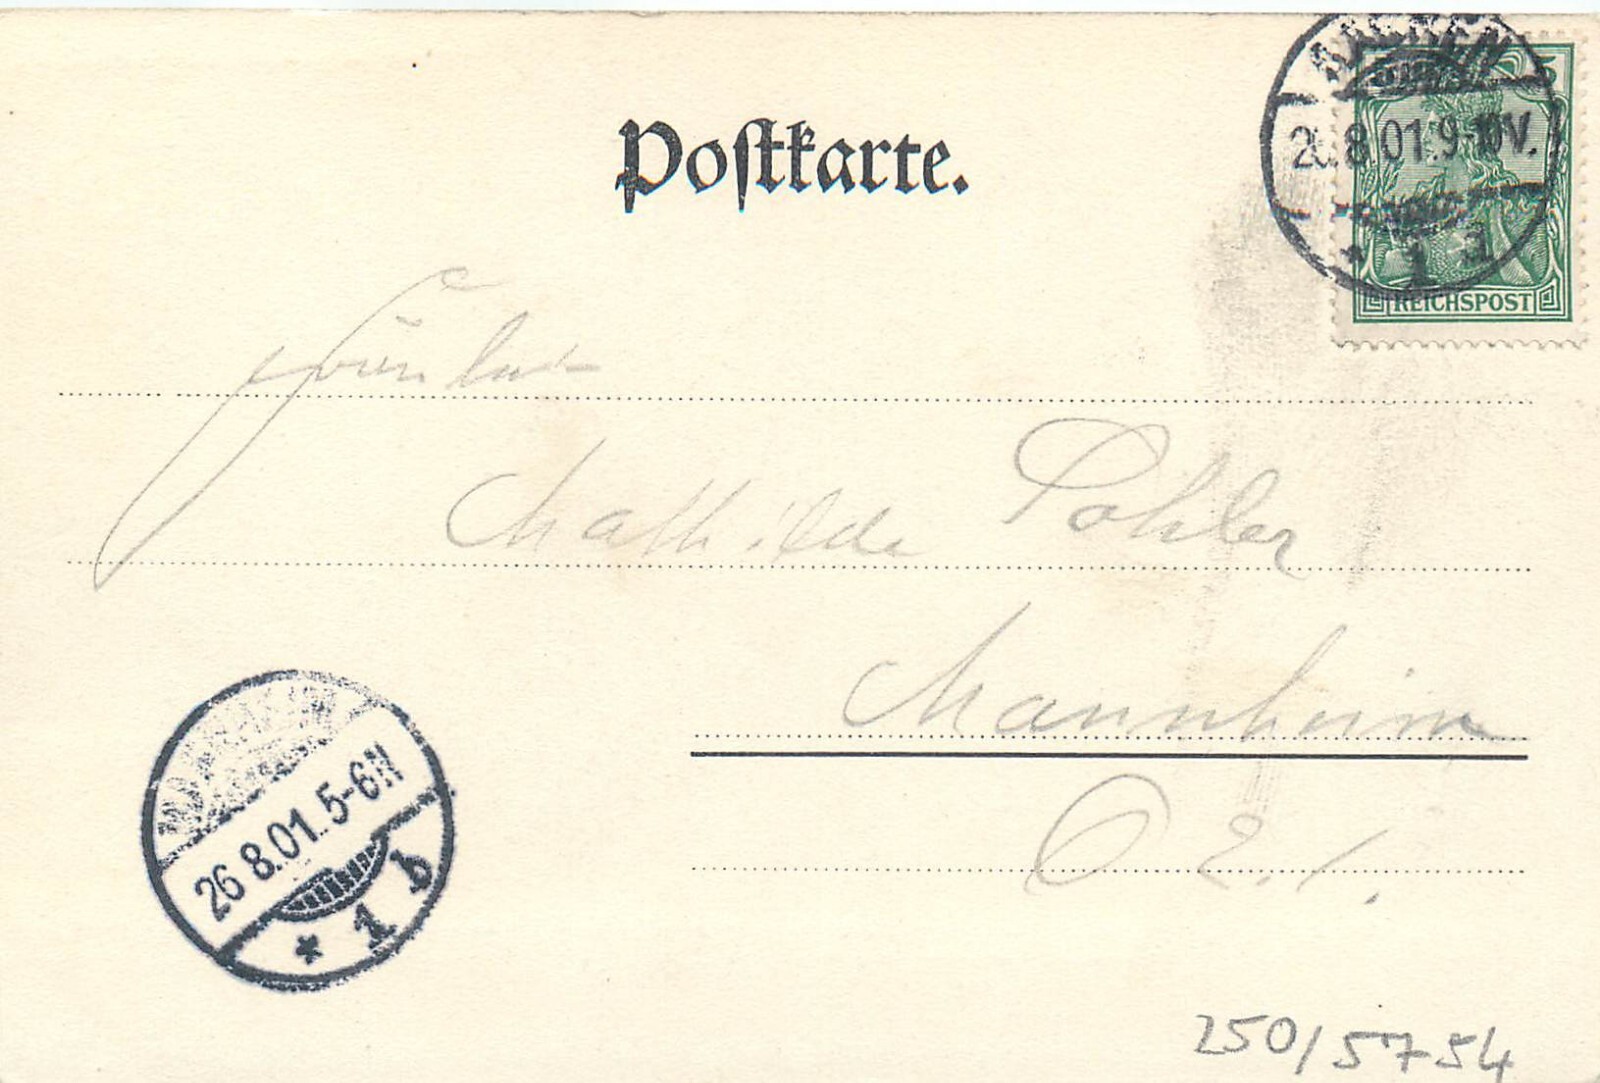 Postkarte.
AACHEN
5
26.8.01.9-10V.
* 1 a
REICHSPOST
Fräulein
Mathilde Pohler
Mannheim
MANNHEIM
26 8.01. 5-6N
* 1 b
250/5754